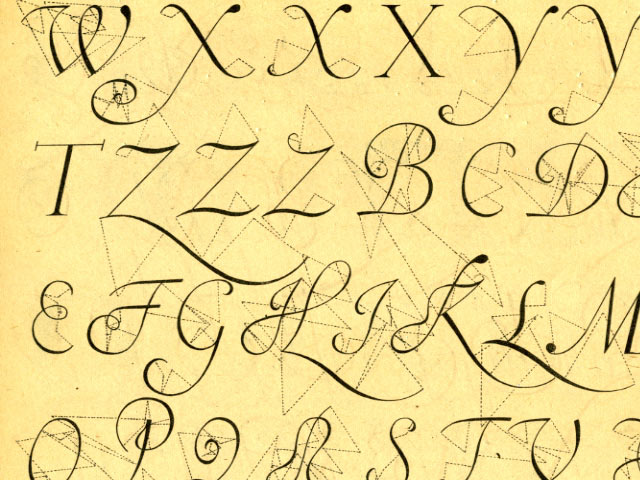 W X X X Y Y
T Z Z Z B C D
E F G H I K L M
O P Q R S T V